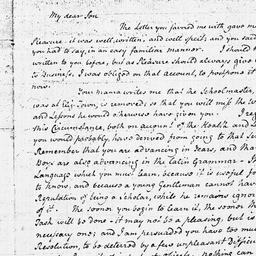 My dear Son
The Letter you favored me with gave me
Pleasure it was well written, and well spelt; and you said
you had to say, in an easy familiar manner. I should
written to you before, but as Pleasure should always give
to Business, I was obliged on that account, to postpone it
now.
Your Mama writes me that the Schoolmaster,
was at    town, is removed, so that you will miss the
and Lessons he would otherwise have given you. I reg
this Circumstance, both on account of the Health and
you would probably, have derived from going to that Sch
Remember that you are advancing in Years, and that
Boys are also advancing in the Latin Grammar - 
Language which you must learn, because it is useful for
to know; and because a young Gentleman cannot have
Reputation of being a Scholar, while he remains ignor
of it. The sooner you begin to learn it, the sooner the
Task will be done - it may not be so pleasing, but is
necessary one; and I am persuaded you have too much
Resolution, to be deterred by a few unpleasant Difficul
nothing can